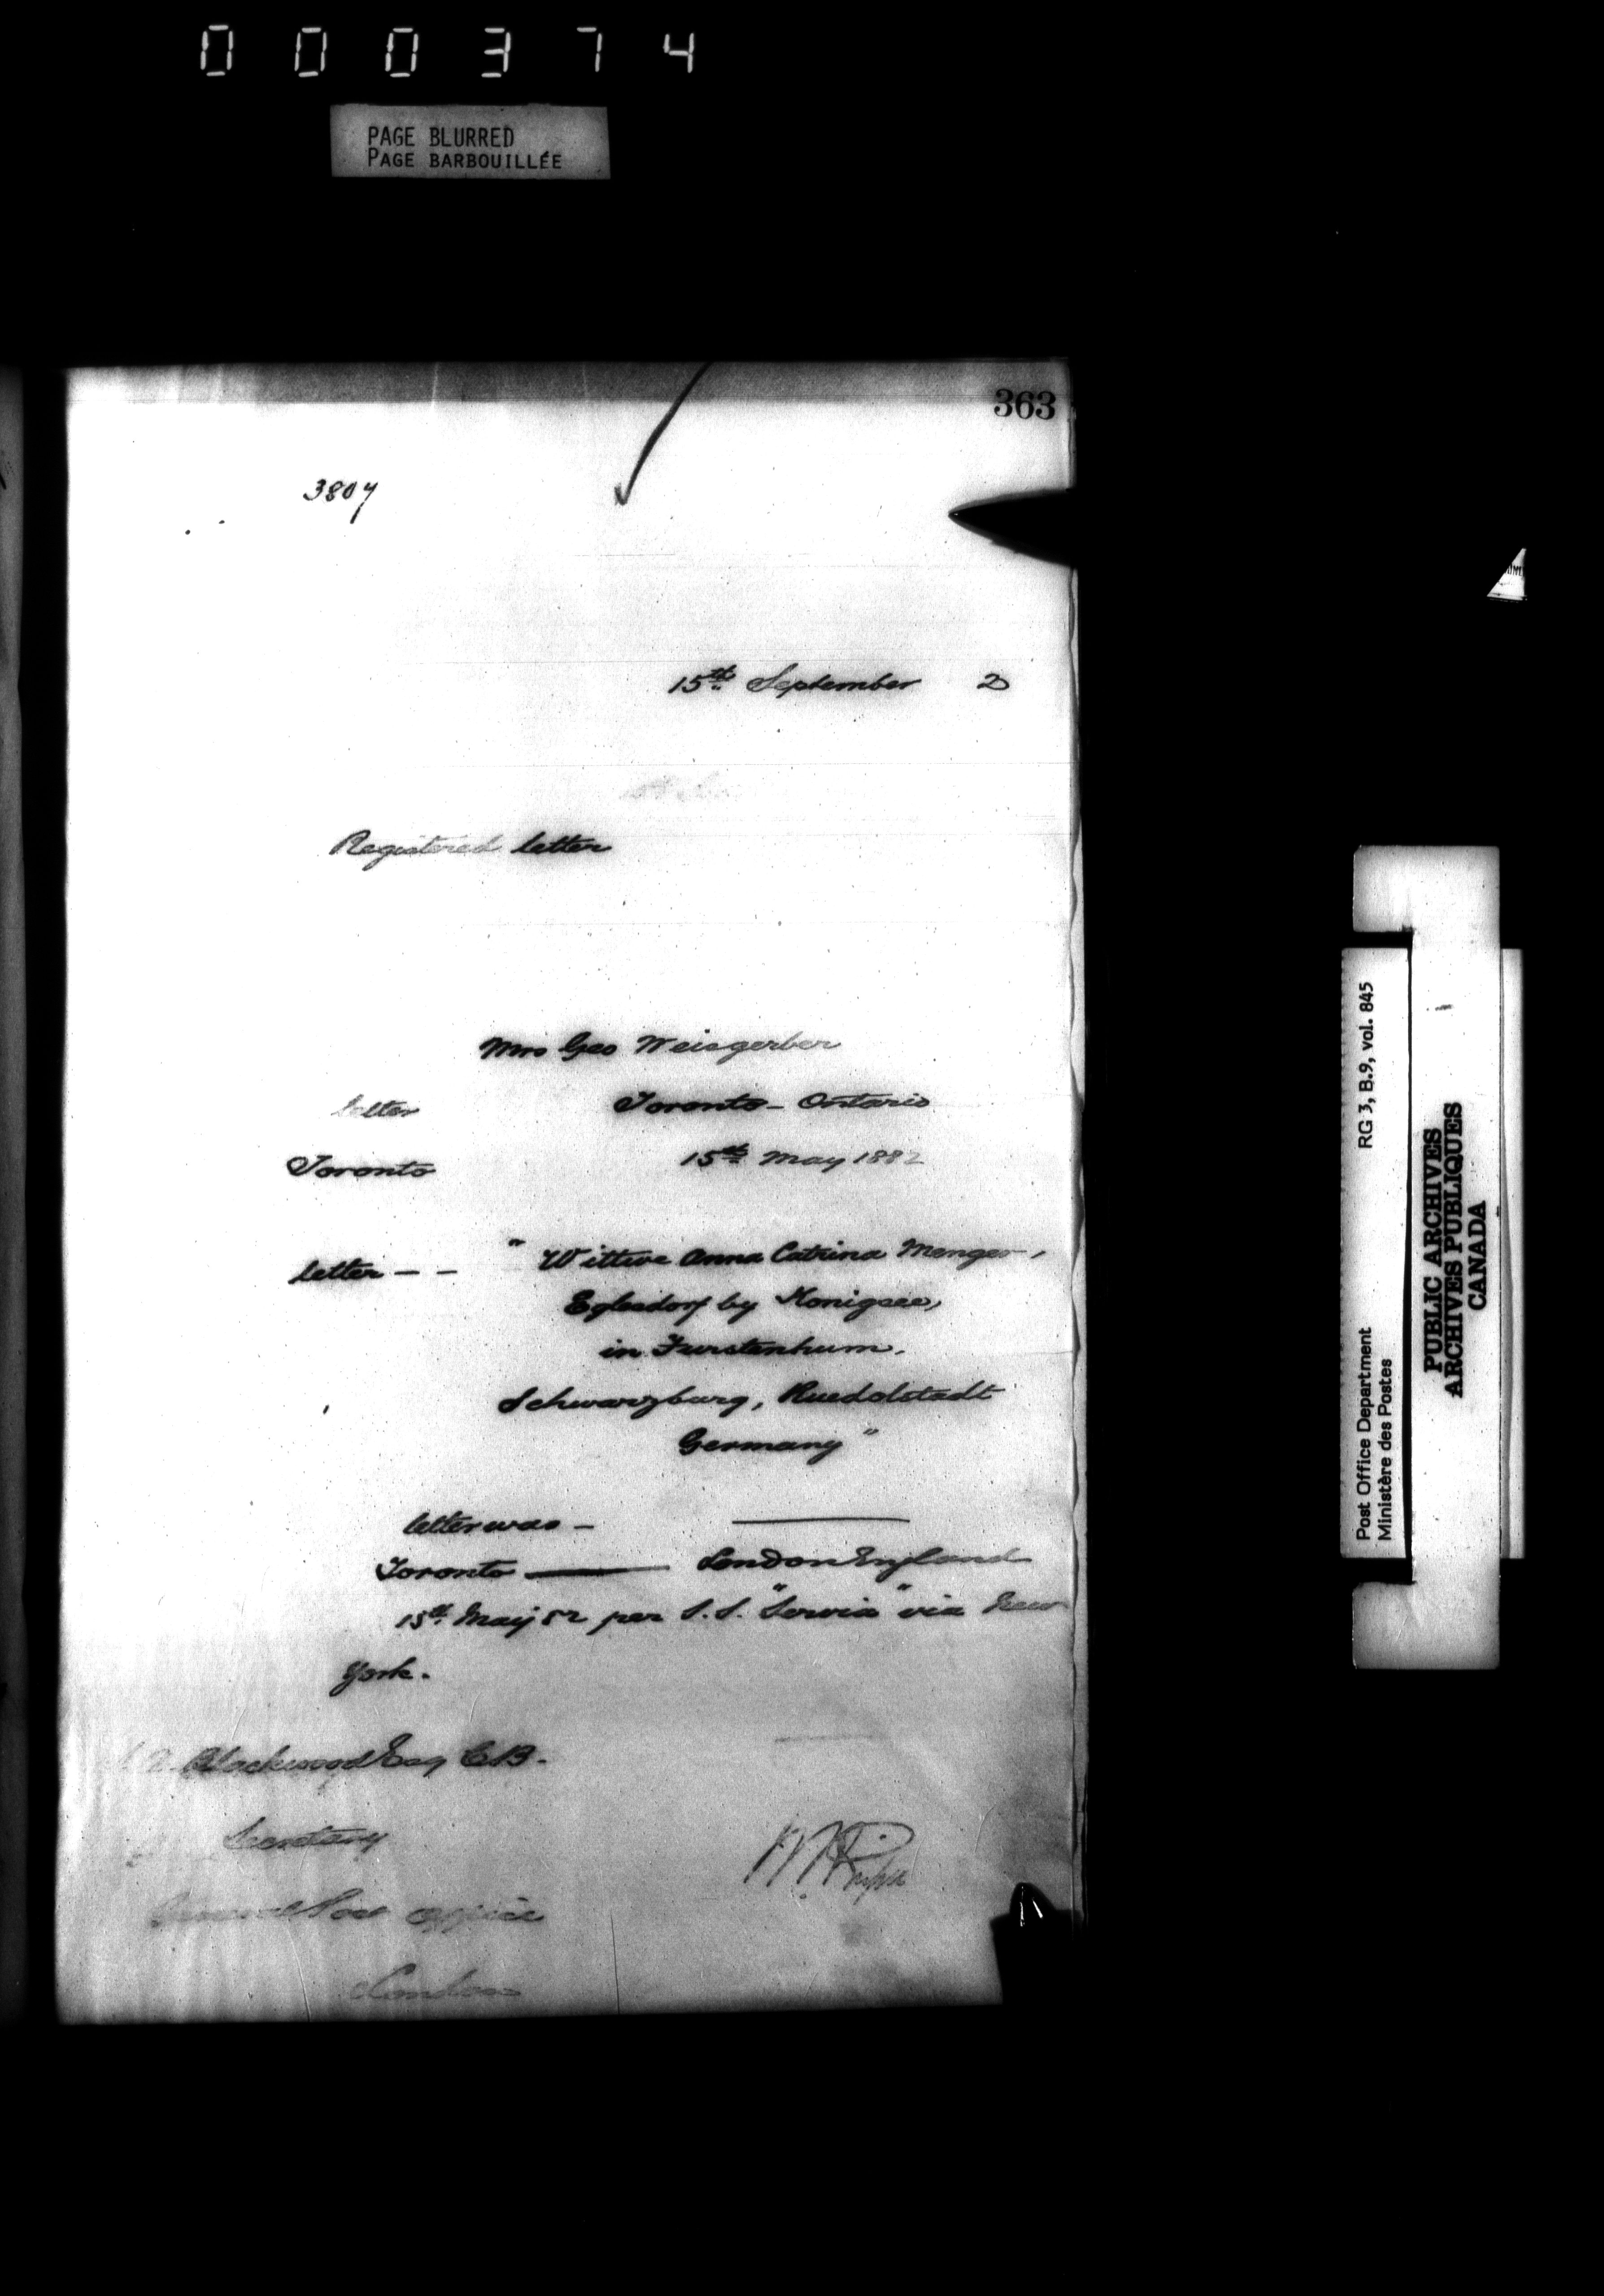 000374
PAGE BLURRED
PAGE BARBOUILLÉE
363
3807
15th September 2
Registered letter
Mrs Geo Weisgerber
letter Toronto - Ontario
Toronto 15th May 1882
letter - - " Wittwe Anna Catrina Menger,
Eglesdorf by Konigsee,
in Furstenhum.
Schwarzburg, Ruedolstadt
Germany "
letter was -
Toronto — London England
15th May 82 per S.S. "Servia" via New
York.
Blackwood Esq CB.
Secretary
General Post Office
London
Post Office Department RG 3, B.9, vol. 845
Ministère des Postes
PUBLIC ARCHIVES
ARCHIVES PUBLIQUES
CANADA